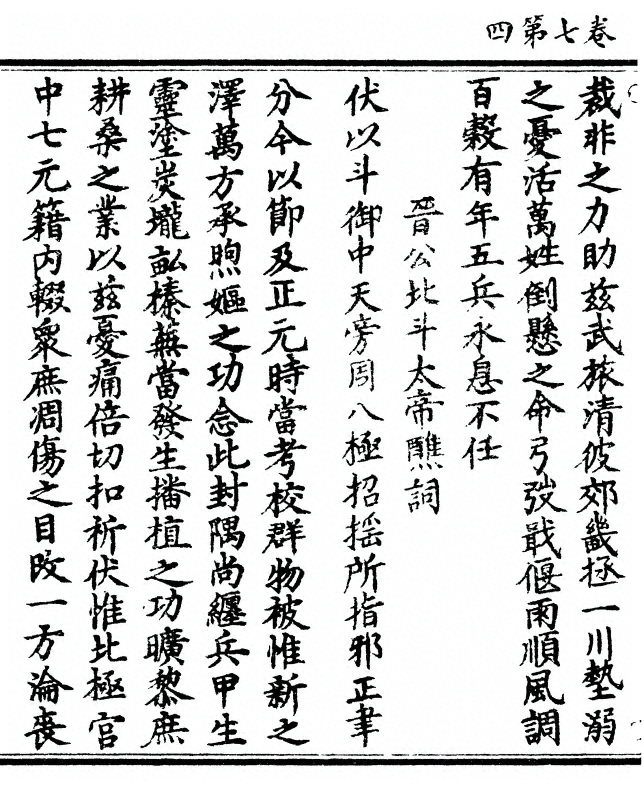 卷七第四
裁非之力助兹武旅清彼郊畿拯一川墊溺
之憂活萬姓倒懸之命弓弢戢偃雨順風調
百穀有年五兵永息不任
晉公北斗太帝醮詞
伏以斗御中天旁周八極招摇所指邪正聿
分今以節及正元時當考校群物被惟新之
澤萬方承煦嫗之功念此封隅尚纏兵甲生
靈塗炭壠畝榛蕪當發生播植之功曠黎庶
耕桑之業以兹憂痛倍切扣祈伏惟北極宫
中七元籍内輟衆庶凋傷之目改一方淪喪